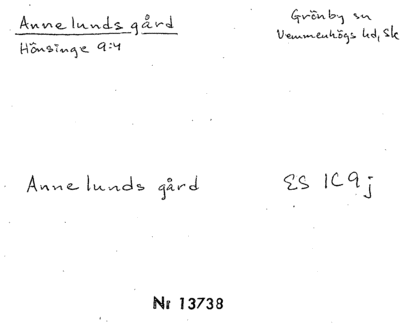 Annelunds gård
Hönsinge 9:4
Grönby sn
Vemmenhögs hd, Sk
Annelunds gård
ES 1C9j
Nr 13738